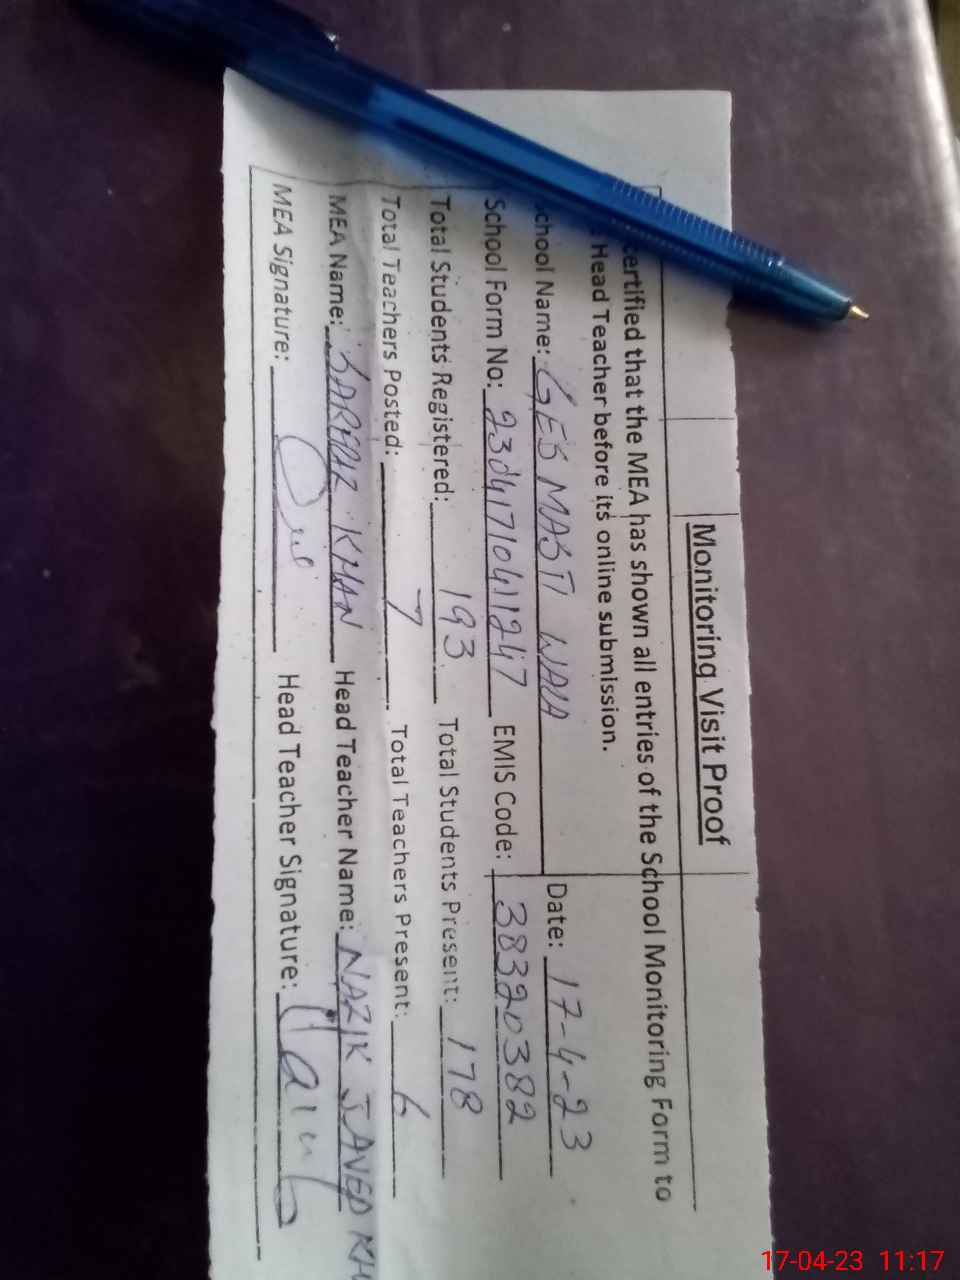 Monitoring Visit Proof
ertified that the MEA has shown all entries of the School Monitoring Form to
Head Teacher before its online submission.
chool Name: GES MASTI WALA Date: 17-4-23
School Form No: 23041710411247 EMIS Code: 38320382
Total Students Registered: 193 Total Students Present: 178
Total Teachers Posted: 7 Total Teachers Present: 6
MEA Name: SARFRAZ KHAN Head Teacher Name: NAZIK JAVED KH
MEA Signature: Head Teacher Signature:
17-04-23 11:17